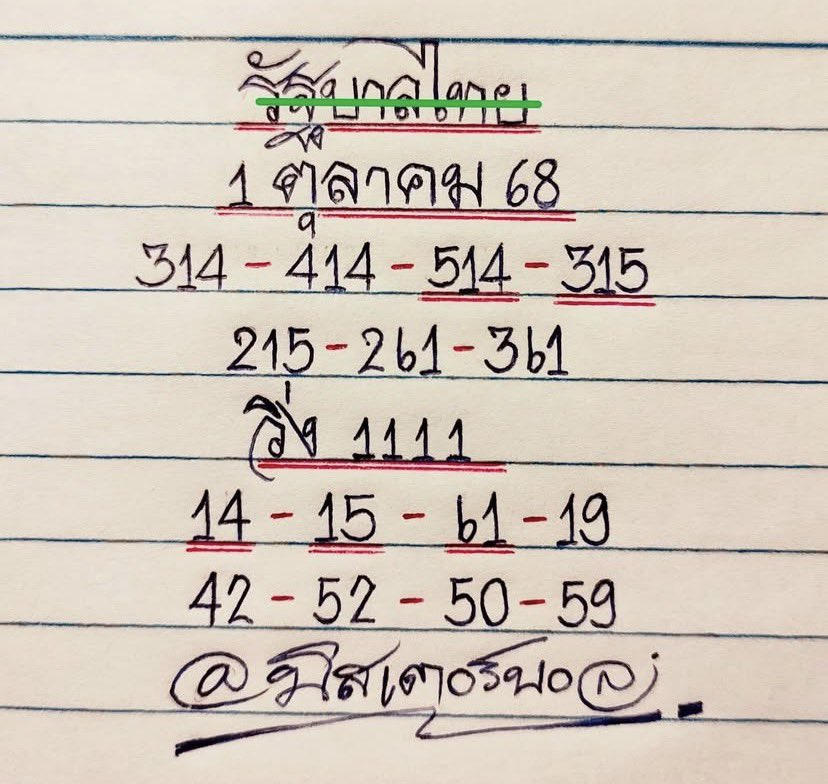 รัฐบาลไทย
1 ตุลาคม 68
314 - 414 - 514 - 315
215 - 261 - 361
วิ่ง 1111
14 - 15 - 61 - 19
42 - 52 - 50 - 59
@มิสเตอร์บอล